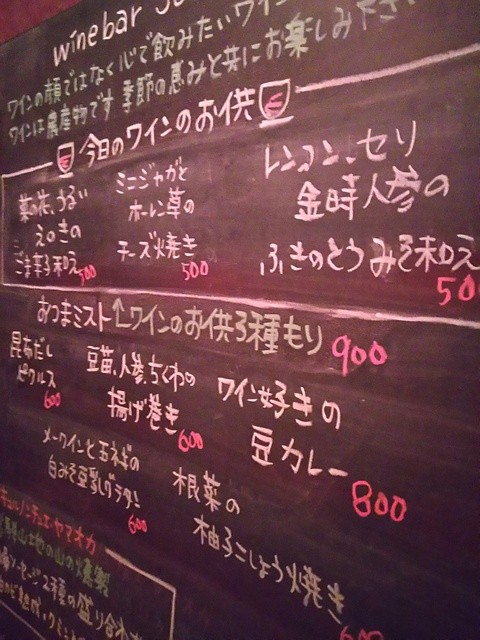 winebar
ワインの顔ではなく心で飲みたいワイン
ワインは農産物です 季節の恵みと共にお楽しみ下さい
今日のワインのお供
菜の花、うるい
えのきの
ごま辛子和え 500
ミニジャガと
ホーレン草の
チーズ焼き
500
レンコン、セリ
金時人参の
ふきのとうみそ和え
500
おつまミスト
ワインのお供3種もり 900
昆布だし
ピクルス
600
豆苗、人参、ちくわの
揚げ巻き
600
ワイン好きの
豆カレー
800
メークインと玉ネギの
白みそ豆乳グラタン
600
根菜の
柚子こしょう焼き
600
ヤマオカ
山地の山の燻製
ソーセージ2種の盛り合わ